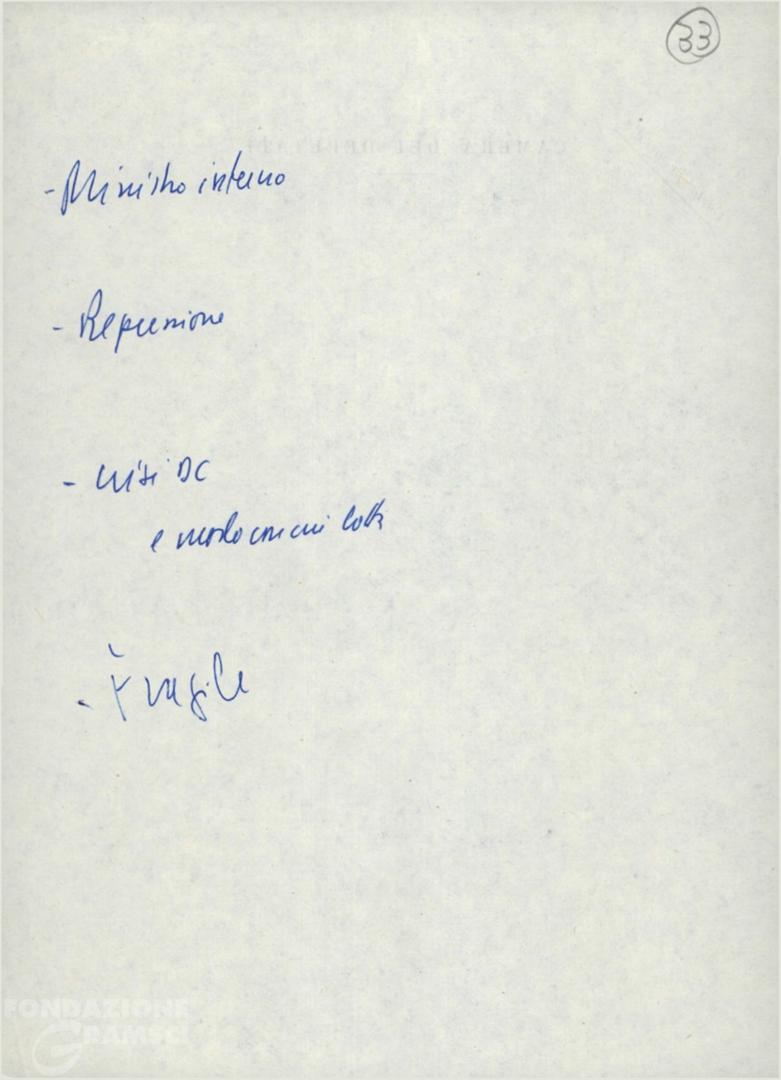 33
CAMERA DEI DEPUTATI
- Ministro interno
- Repressione
- crisi DC
e modo con cui lotta
- Fragile
FONDAZIONE
GRAMSCI